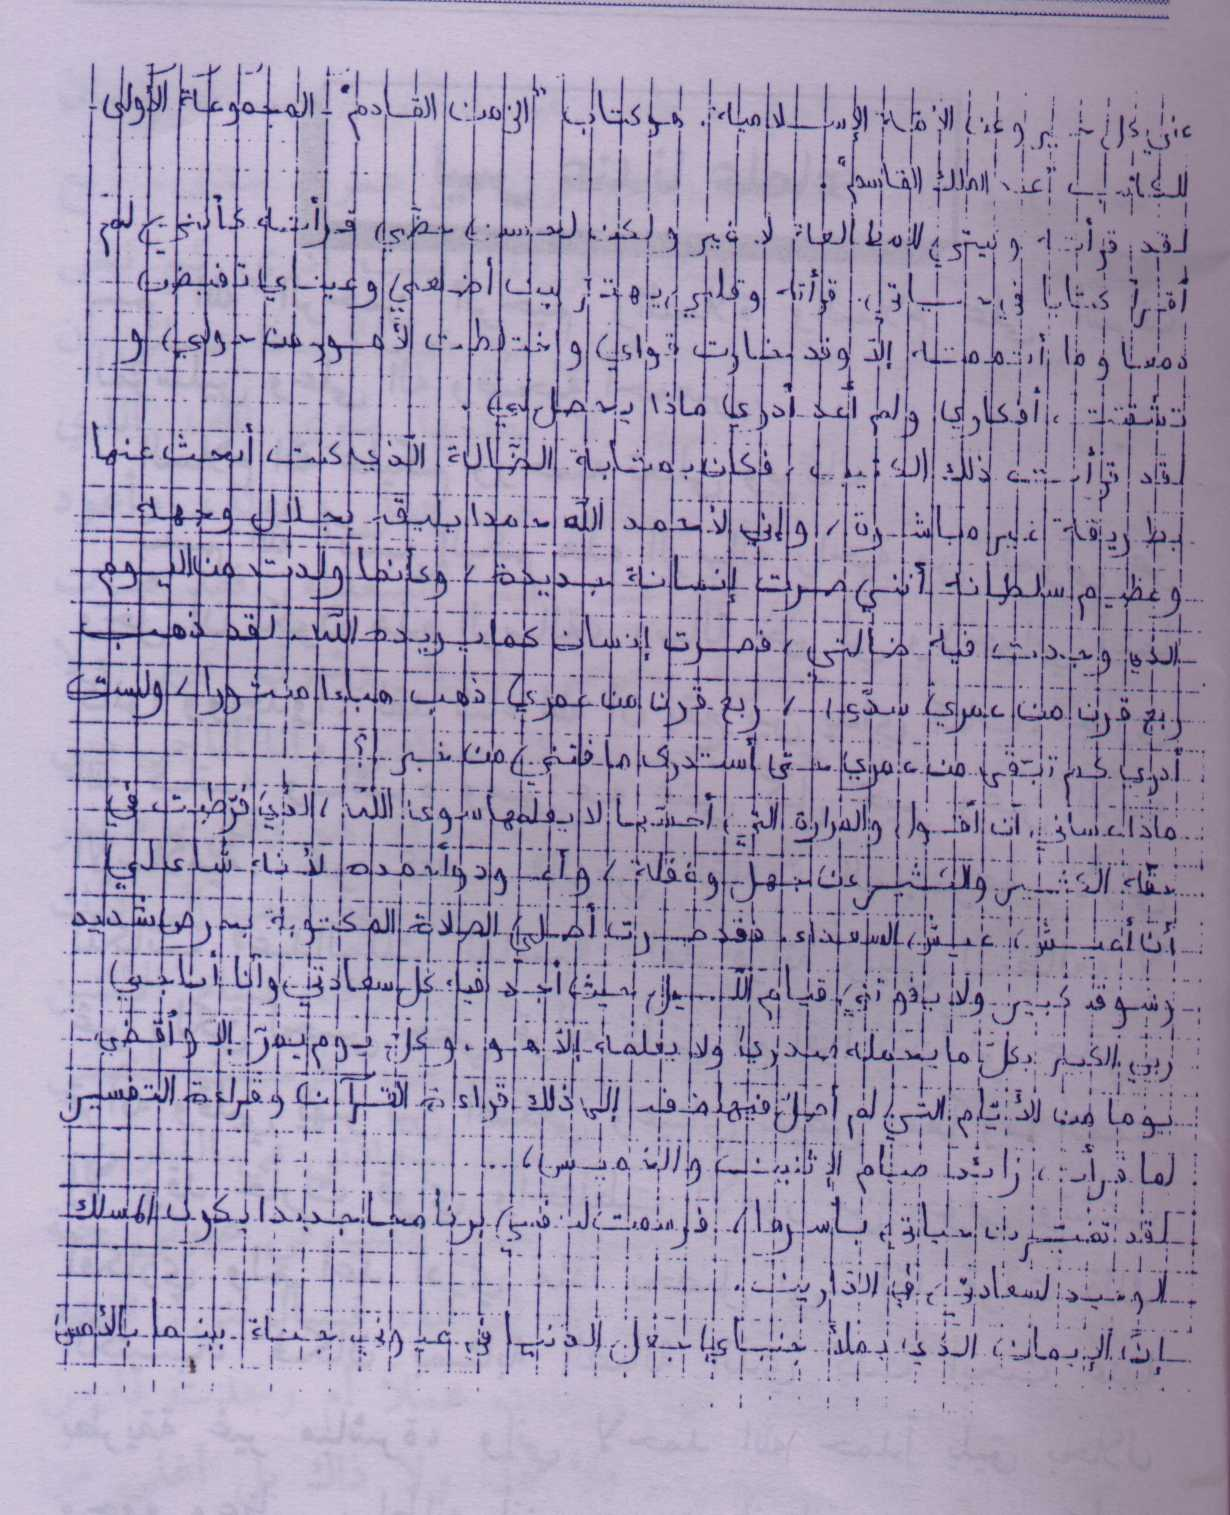 عني كل خير وعن الأمة الإسلامية. هو كتاب "الزمن القادم" - المجموعة الأولى -
للكاتب "عبد الملك القاسم".
لقد قرأته ونيتي للمطالعة لا غير ولكن لحسن حظي، قرأته كأنني لم
أقرأ كتابا في حياتي. قرأته وقلبي يهتز بين أضلعي وعيناي تفيض
دمعا وما أتممته إلا وقد خارت قواي واختلطت الأمور من حولي و
تشتتت أفكاري ولم أعد أدري ماذا يحصل لي.
لقد قرأت ذلك الكتيب، فكان بمثابة الضالة الذي كنت أبحث عنها
بطريقة غير مباشرة، وإني لأحمد الله حمدا يليق بجلال وجهه
وعظيم سلطانه أنني صرت إنسانة جديدة، وكأنما ولدت من اليوم
الذي وجدت فيه ضالتي، فصرت إنسان كما يريده الله. لقد ذهب
ربع قرن من عمري سدى، ربع قرن من عمري ذهب هباءا منثورا، ولست
أدري كم تبقى من عمري حتى أستدرك ما فاتني من خير!؟
ماذا عساني أن أقول والمرارة التي أحس بها لا يعلمها سوى الله، الذي فرطت في
حقه الكثير والكثير عن جهل وغفلة، وأعود وأحمده لأنه شاء لي
أن أعيش عيش السعداء. فقد صرت أصلي الصلاة المكتوبة بحرص شديد
وشوق كبير ولا يفوتني قيام الليل حيث أجد فيه كل سعادتي وأنا أناجي
ربي الكبير بكل ما يحمله صدري ولا يعلمه إلا هو. وكل يوم يمر إلا وأقضي
يوما من الأيام التي لم أصل فيها ضف إلى ذلك قراءة القرآن وقراءة التفسير
لما قرأت، زائد صيام الإثنين والخميس، ...
لقد تغيرت حياتي بأسرها، فرسمت لنفسي برنامجا جديدا يكون المسلك
الوحيد لسعادتي في الدارين.
إن الإيمان الذي يملأ جنباي جعل الدنيا في عيوني جنة بينما بالأمس